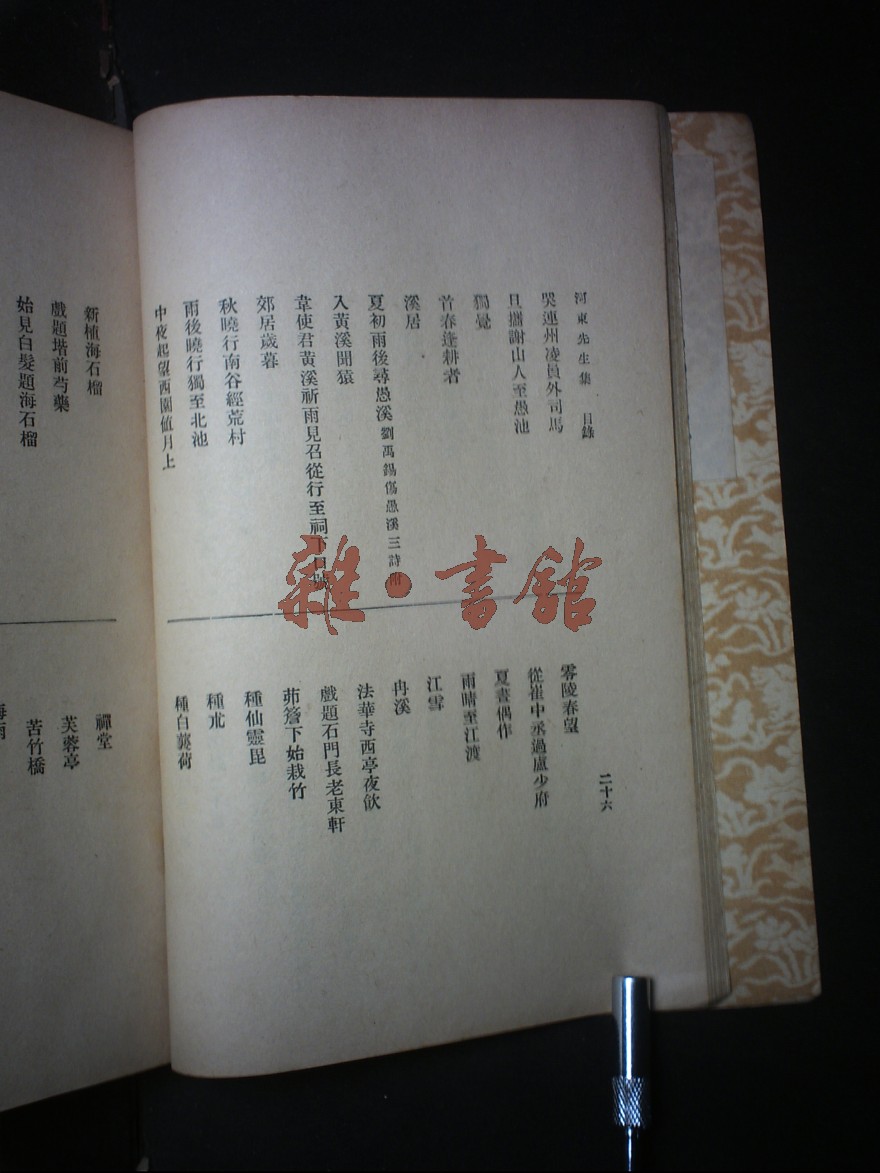 河東先生集　目錄
哭連州凌員外司馬
旦攜謝山人至愚池
獨覺
首春逢耕者
溪居
夏初雨後尋愚溪 劉禹錫傷愚溪三詩附
入黃溪聞猿
韋使君黃溪祈雨見召從行至祠下口號
郊居歲暮
秋曉行南谷經荒村
雨後曉行獨至北池
中夜起望西園值月上
二十六
零陵春望
從崔中丞過盧少府
夏晝偶作
雨晴至江渡
江雪
冉溪
法華寺西亭夜飲
戲題石門長老東軒
茆簷下始栽竹
種仙靈毘
種朮
種白蘘荷
新植海石榴
戲題堦前芍藥
始見白髮題海石榴
禪堂
芙蓉亭
苦竹橋
雜·書館